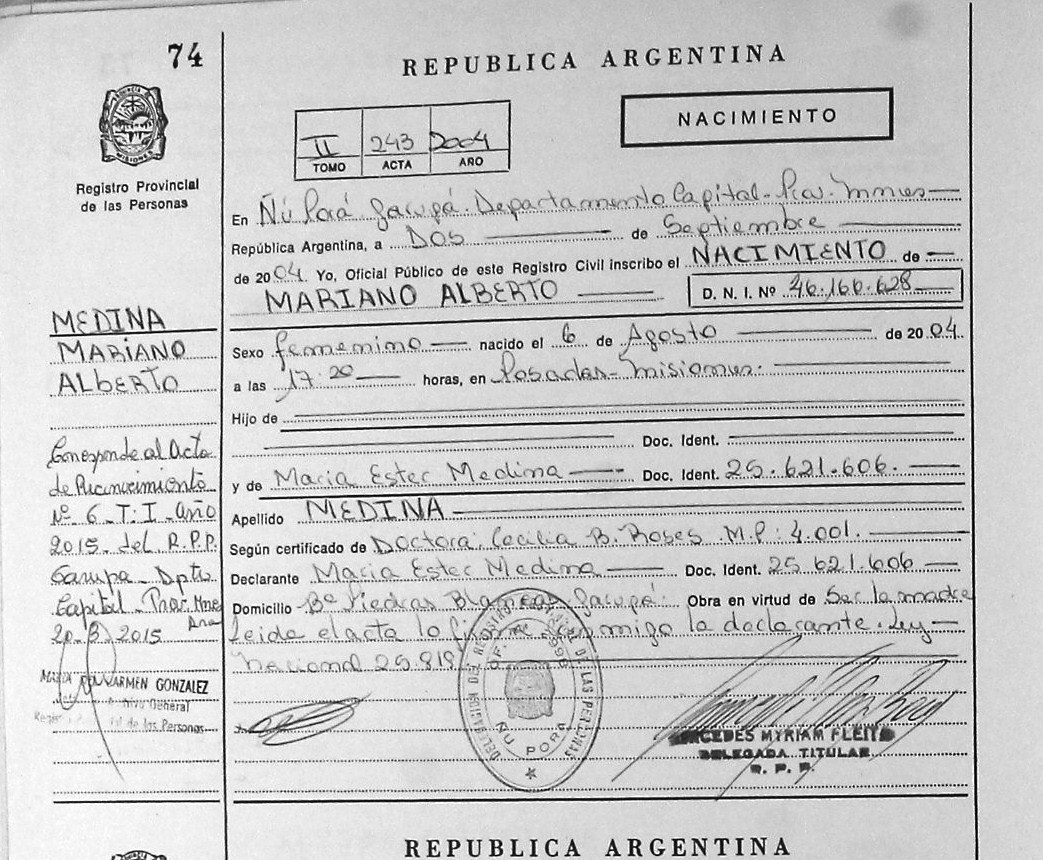 74
REPUBLICA ARGENTINA
II 243 2004
TOMO ACTA AÑO
NACIMIENTO
PROVINCIA DE MISIONES
Registro Provincial
de las Personas
En Ñú Porá Garupá Departamento Capital - Prov. Mnes
República Argentina, a Dos de Septiembre
de 2004. Yo, Oficial Público de este Registro Civil inscribo el NACIMIENTO de
MARIANO ALBERTO D. N. I. Nº 46.166.628
Sexo femenino nacido el 6 de Agosto de 2004.
a las 17.20 horas, en Posadas - Misiones.
Hijo de
Doc. Ident.
y de Maria Ester Medina Doc. Ident. 25.621.606.
Apellido MEDINA
Según certificado de Doctora Cecilia B. Roses M.P: 4.001.
Declarante Maria Ester Medina Doc. Ident. 25.621.606
Domicilio Bº Piedras Blancas - Garupá. Obra en virtud de Ser la madre
leida el acta lo firma conmigo la declarante. Ley
Nacional 25.819
MEDINA
MARIANO
ALBERTO
Corresponde al Acta
de Reconocimiento
Nº 6 - T: I - año
2015 - del R.P.P.
Garupa - Dpto
Capital - Prov. Mnes
2015
CARMEN GONZALEZ
Archivo General
de las Personas
DELEGACION DEL REGISTRO DE LAS PERSONAS
ÑU PORA
MERCEDES MYRIAM FLEITA
DELEGADA TITULAR
R. P. P.
REPUBLICA ARGENTINA